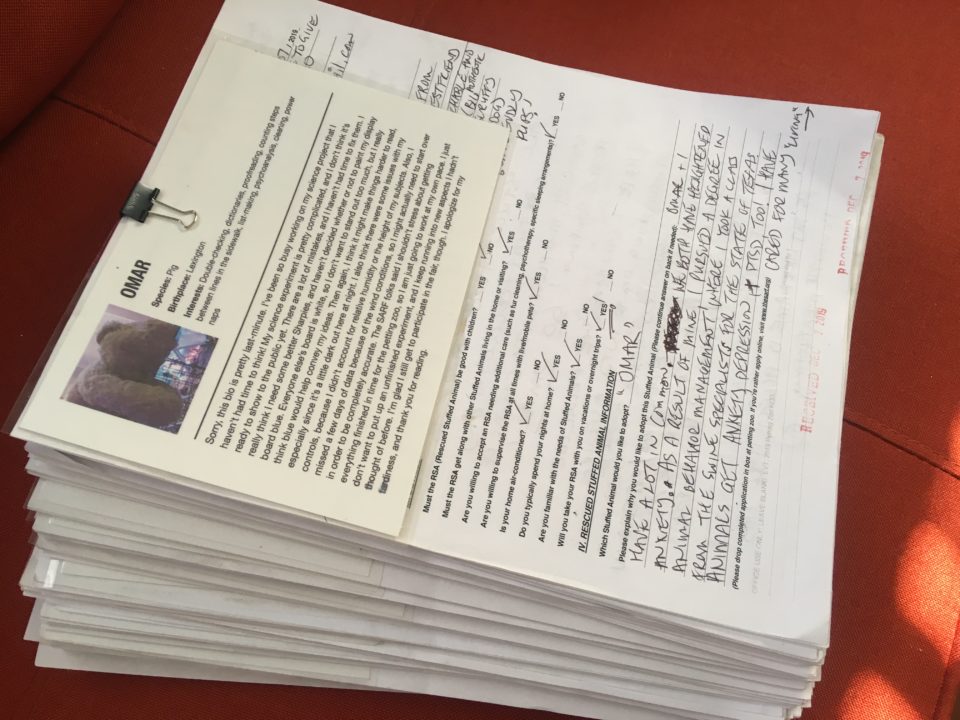 OMAR
Species: Pig
Birthplace: Lexington
Interests: Double-checking, dictionaries, proofreading, counting steps
between lines in the sidewalk, list-making, psychoanalysis, cleaning, power
naps
Sorry, this bio is pretty last-minute. I've been so busy working on my science project that I
haven't had time to think! My science experiment is pretty complicated, and I don't think it's
ready to show to the public yet. There are a lot of mistakes, and I haven't had time to fix them. I
really think I need some better Sharpies, and haven't decided whether or not to paint my display
board blue. Everyone else's board is white, so I don't want to stand out too much, but I really
think blue would help convey my ideas. Then again, I think it might make things harder to read,
especially since it's a little dark out here at night. I also think there were some issues with my
controls, because I didn't account for relative humidity or the height of my subjects. Also, I
missed a few days of data because of the wind conditions, so I might actually need to start over
in order to be completely accurate. The SARF folks said I shouldn't stress about getting
everything finished in time for the petting zoo, so I am just going to work at my own pace. I just
don't want to put up an unfinished experiment, and I keep running into new aspects I hadn't
thought of before. I'm glad I still get to participate in the fair, though. I apologize for my
tardiness, and thank you for reading.
, 2019
TO GIVE
FROM
AND
AUTHENTIC
DOG)
PUPS!
Must the RSA (Rescued Stuffed Animal) be good with children? ✓ YES __ NO
Must the RSA get along with other Stuffed Animals living in the home or visiting? ✓ YES __ NO
Are you willing to accept an RSA needing additional care (such as fur cleaning, psychotherapy, specific sleeping arrangements)? ✓ YES __ NO
Are you willing to supervise the RSA at all times with live/mobile pets? ✓ YES __ NO
Is your home air-conditioned? ✓ YES __ NO
Do you typically spend your nights at home? ✓ YES __ NO
Are you familiar with the needs of Stuffed Animals? ✓ YES __ NO
Will you take your RSA with you on vacations or overnight trips? ✓ YES! __ NO
IV. RESCUED STUFFED ANIMAL INFORMATION
Which Stuffed Animal would you like to adopt? "OMAR"
Please explain why you would like to adopt this Stuffed Animal (Please continue answer on back if needed): OMAR + I
HAVE A LOT IN COMMON. WE BOTH HAVE HEIGHTENED
ANXIETY. AS A RESULT OF MINE I PURSUED A DEGREE IN
ANIMAL BEHAVIOR MANAGEMENT WHERE I TOOK A CLASS
FROM THE SWINE SPECIALIST FOR THE STATE OF TEXAS
ANIMALS GET ANXIETY, DEPRESSION + PTSD TOO! I HAVE
(Please drop completed application in box at petting zoo. If you'd rather apply online, visit www.tsart.org) CARED FOR MANY
OFFICE USE ONLY: LEAVE BLANK
RECEIVED DEC 2019